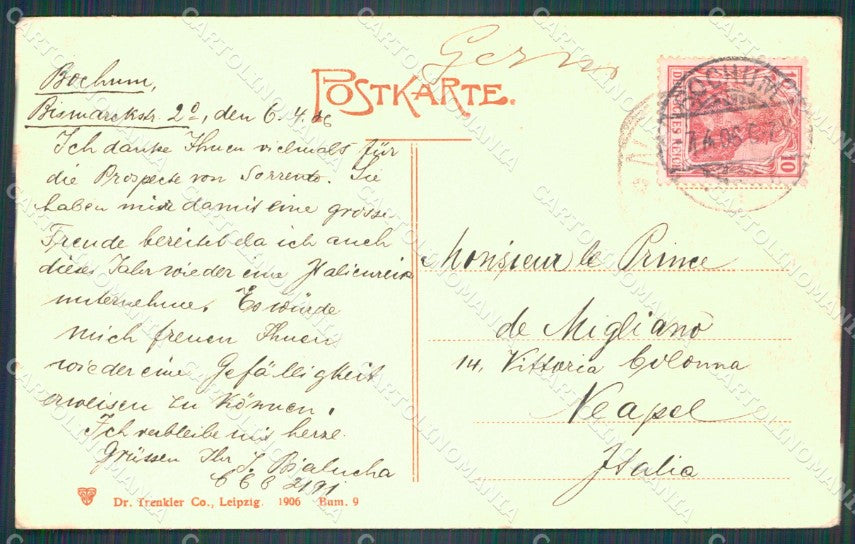 Germ
POSTKARTE.
Bochum,
Bismarckstr. 20, den 6.4.06
Ich danke Ihnen vielmals für
die Prospecte von Sorrento. Sie
haben mir damit eine grosse
Freude bereitet da ich auch
dieses Jahr wieder eine Italienreise
unternehme. Es würde
mich freuen Ihnen
wieder eine Gefälligkeit
erweisen zu können.
Ich verbleibe mit herzl.
Grüssen Ihr J. Bialucha
C C C 2191
Dr. Trenkler Co., Leipzig. 1906 Bum. 9
BOCHUM
7.4.06
DEUTSCHES REICH
10
Monsieur le Prince
de Migliano
14, Vittoria Colonna
Neapel
Italia
CARTOLINOMANIA